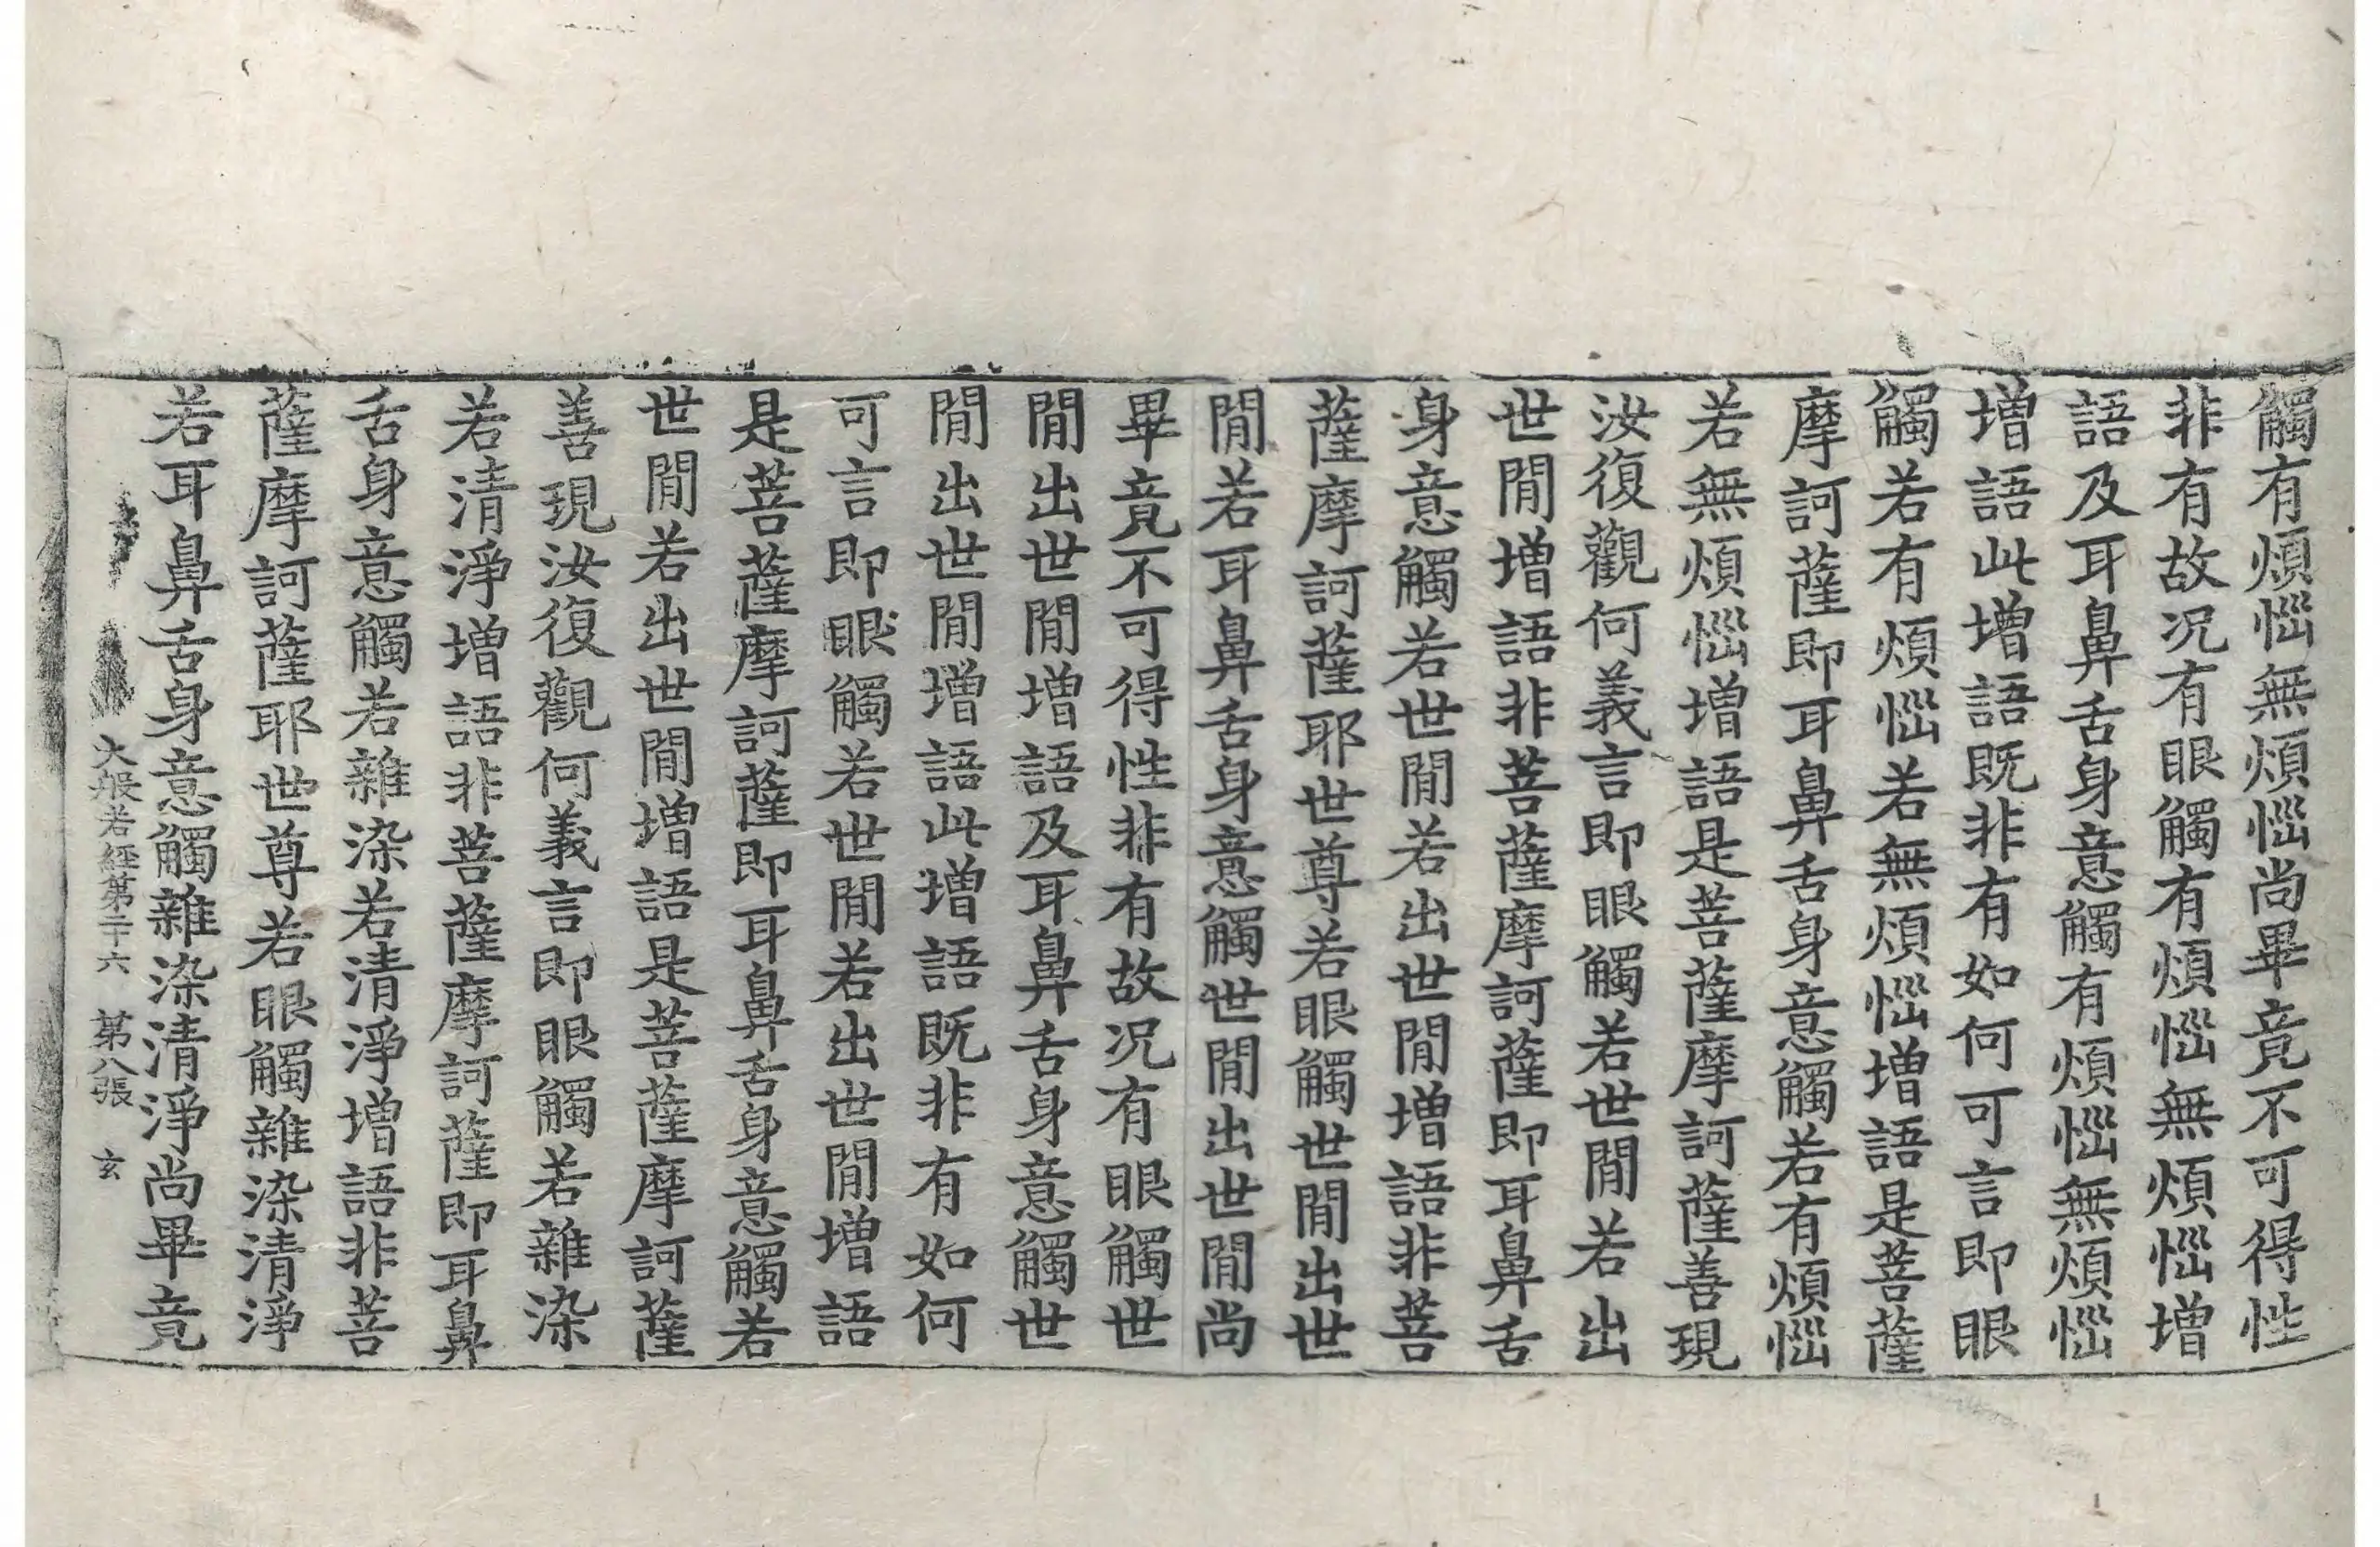 觸有煩惱無煩惱尚畢竟不可得性
非有故况有眼觸有煩惱無煩惱增
語及耳鼻舌身意觸有煩惱無煩惱
增語此增語既非有如何可言即眼
觸若有煩惱若無煩惱增語是菩薩
摩訶薩即耳鼻舌身意觸若有煩惱
若無煩惱增語是菩薩摩訶薩善現
汝復觀何義言即眼觸若世閒若出
世閒增語非菩薩摩訶薩即耳鼻舌
身意觸若世閒若出世閒增語非菩
薩摩訶薩耶世尊若眼觸世閒出世
閒若耳鼻舌身意觸世閒出世閒尚
畢竟不可得性非有故况有眼觸世
閒出世閒增語及耳鼻舌身意觸世
閒出世閒增語此增語既非有如何
可言即眼觸若世閒若出世閒增語
是菩薩摩訶薩即耳鼻舌身意觸若
世閒若出世閒增語是菩薩摩訶薩
善現汝復觀何義言即眼觸若雜染
若清淨增語非菩薩摩訶薩即耳鼻
舌身意觸若雜染若清淨增語非菩
薩摩訶薩耶世尊若眼觸雜染清淨
若耳鼻舌身意觸雜染清淨尚畢竟
大般若經第二十六 第八張 玄